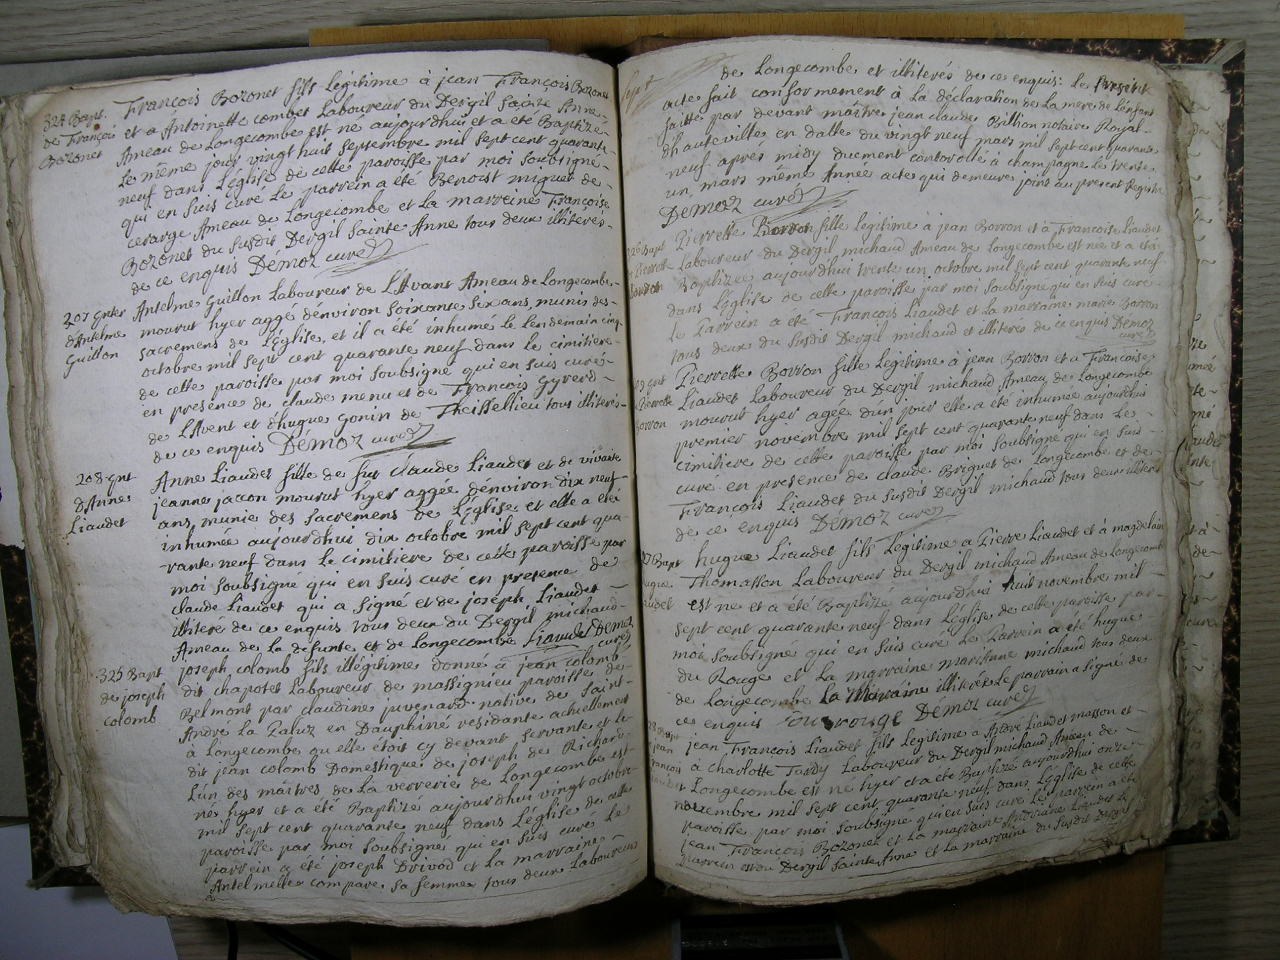 324 Bapt.
de François
Bozonet
François Bozonet fils Legitime à jean François Bozonet
et a Antoinette combet Laboureur du Dergil Sainte Anne
Ameau de Longecombe est né aujourdhui et a eté Baptize
Le même jour vingt huit septembre mil sept cent quarante
neuf dans L'eglise de cette paroisse par moi soubsigné
qui en suis curé Le parrein a été Benoist miguet de
cerarge Ameau de Longecombe et La marreine Françoise
Bozonet du susdit Dergil Sainte Anne tous deux illiterés
de ce enquis Démoz curé
207 Enter
d'Antelme
Guillon
Antelme Guillon Laboureur de L'Avans Ameau de Longecombe
mourut hyer aggé denviron soixante six ans, munis des
sacremens de L'Eglise, et il a été inhumé Le Lendemain cinq
octobre mil sept cent quarante neuf dans Le cimitiere
de cette paroisse par moi soubsigné qui en suis curé
en presence de claude menu et de François
de L'Avent et d'hugue Gonin de Theissellieu tous illiterés
de ce enquis Démoz curé
208 Ent
d'Anne
Liaudet
Anne Liaudet fille de fut claude Liaudet et de vivante
jeanne jaccon mourut hyer aggée denviron dix neuf
ans, munie des sacremens de L'Eglise et elle a eté
inhumée aujourdhui dix octobre mil sept cent qua
rante neuf dans Le cimitiere de cette paroisse par
moi soubsigné qui en suis curé en presence de
claude Liaudet qui a signé et de joseph Liaudet
illiteré de ce enquis tous deux du Dergil michaud
Ameau de La defunte et de Longecombe Liaudet Démoz
curé
325 Bapt
de joseph
colomb
joseph colomb fils illégitime donné à jean colomb
dit chapotet Laboureur de massignieu paroisse de
Belmont par claudine juvenard native de saint
André La Paluz en Dauphiné residante actuellement
à Longecombe ou elle étoit cy devant servante et Le
dit jean colomb Domestique de joseph de Richard
L'un des maitres de La verrerie de Longecombe est
né hyer et a été Baptizé aujourdhui vingt octobre
mil sept cent quarante neuf dans L'église de cette
paroisse par moi soubsigné qui en suis curé Le
parrein a été joseph Drivod et La marraine
Antelmette compare sa femme tous deux Laboureur
de Longecombe et illiterés de ce enquis: Le Present
acte fait conformement à La déclaration de La mere de L'enfant
faitte par devant maitre jean claude Billion notaire Royal
dhauteville en datte du vingt neuf mars mil sept cent quarante
neuf aprés midy duement controllé à champagne Le trente
un mars même Année acte qui demeure joint au present Registre
Démoz curé
326 Bapt
de Pierrette
Borron
Pierrette Borron fille Legitime à jean Borron et à Françoise Liaudet
Laboureur du Dergil michaud Ameau de Longecombe est née et a été
Baptizée aujourdhui trente un octobre mil sept cent quarante neuf
dans L'église de cette paroisse par moi soubsigné qui en suis curé
Le Parrein a été François Liaudet et La marraine marie Borron
tous deux du susdit Dergil michaud et illiterés de ce enquis Démoz
curé
209 Ent
de Pierrette
Borron
Pierrette Borron fille Legitime à jean Borron et à Françoise
Liaudet Laboureur du Dergil michaud Ameau de Longecombe
mourut hyer agée d'un jour elle a été inhumée aujourdhui
premier novembre mil sept cent quarante neuf dans Le
cimitiere de cette paroisse par moi soubsigné qui en suis
curé en presence de claude Briguet de Longecombe et de
François Liaudet du susdit Dergil michaud tous deux illiterés
de ce enquis Démoz curé
327 Bapt
hugue
Liaudet
hugue Liaudet fils Legitime a Pierre Liaudet et à magdelaine
Thomasson Laboureur du Dergil michaud Ameau de Longecombe
est né et a été Baptizé aujourdhui huit novembre mil
sept cent quarante neuf dans L'église de cette paroisse par
moi soubsigné qui en suis curé Le Parrein a été hugue
du Rouge et La marraine mariAnne michaud tous deux
de Longecombe La Maraine illiterée Le parrain a signé de
ce enquis Du rouge Démoz curé
328 Bapt
jean
François
Liaudet
jean François Liaudet fils Legitime a André Liaudet masson et
à charlotte Tardy Laboureur du Dergil michaud Ameau de
Longecombe est né hyer et a été Baptizé aujourdhui onze
novembre mil sept cent quarante neuf dans L'église de cette
paroisse par moi soubsigné qui en suis curé Le parrein a été
jean François Bozonet et La marraine Liaudet Le
parrein est du Dergil Sainte Anne et La marraine du susdit Dergil